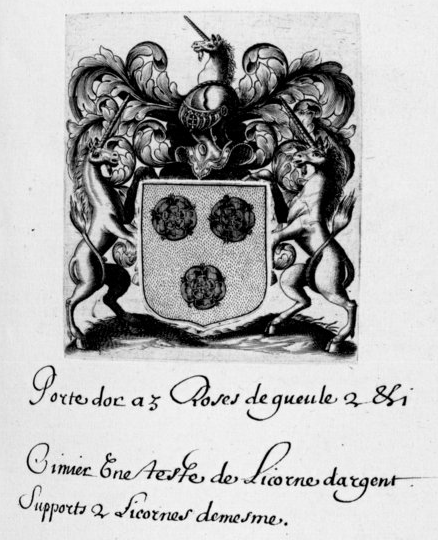 Porte dor a 3 Roses de gueule 2 & i
Cimier Vne teste de Licorne dargent.
Supports 2 Licornes demesme.